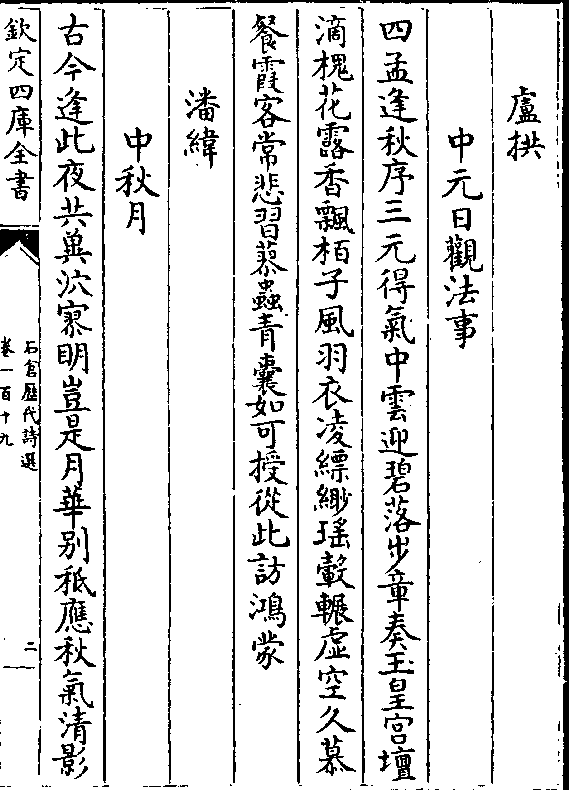 盧拱
中元日觀法事
四孟逢秋序三元得氣中雲迎碧落步章奏玉皇宮壇
滴槐花露香飄栢子風羽衣凌縹緲瑶轂輾虛空久慕
餐霞客常悲習蓼蟲青囊如可授從此訪鴻蒙
潘緯
中秋月
古今逢此夜共冀泬寥明豈是月華别秪應秋氣清影
欽定四庫全書
石倉歴代詩選
卷一百十九
二